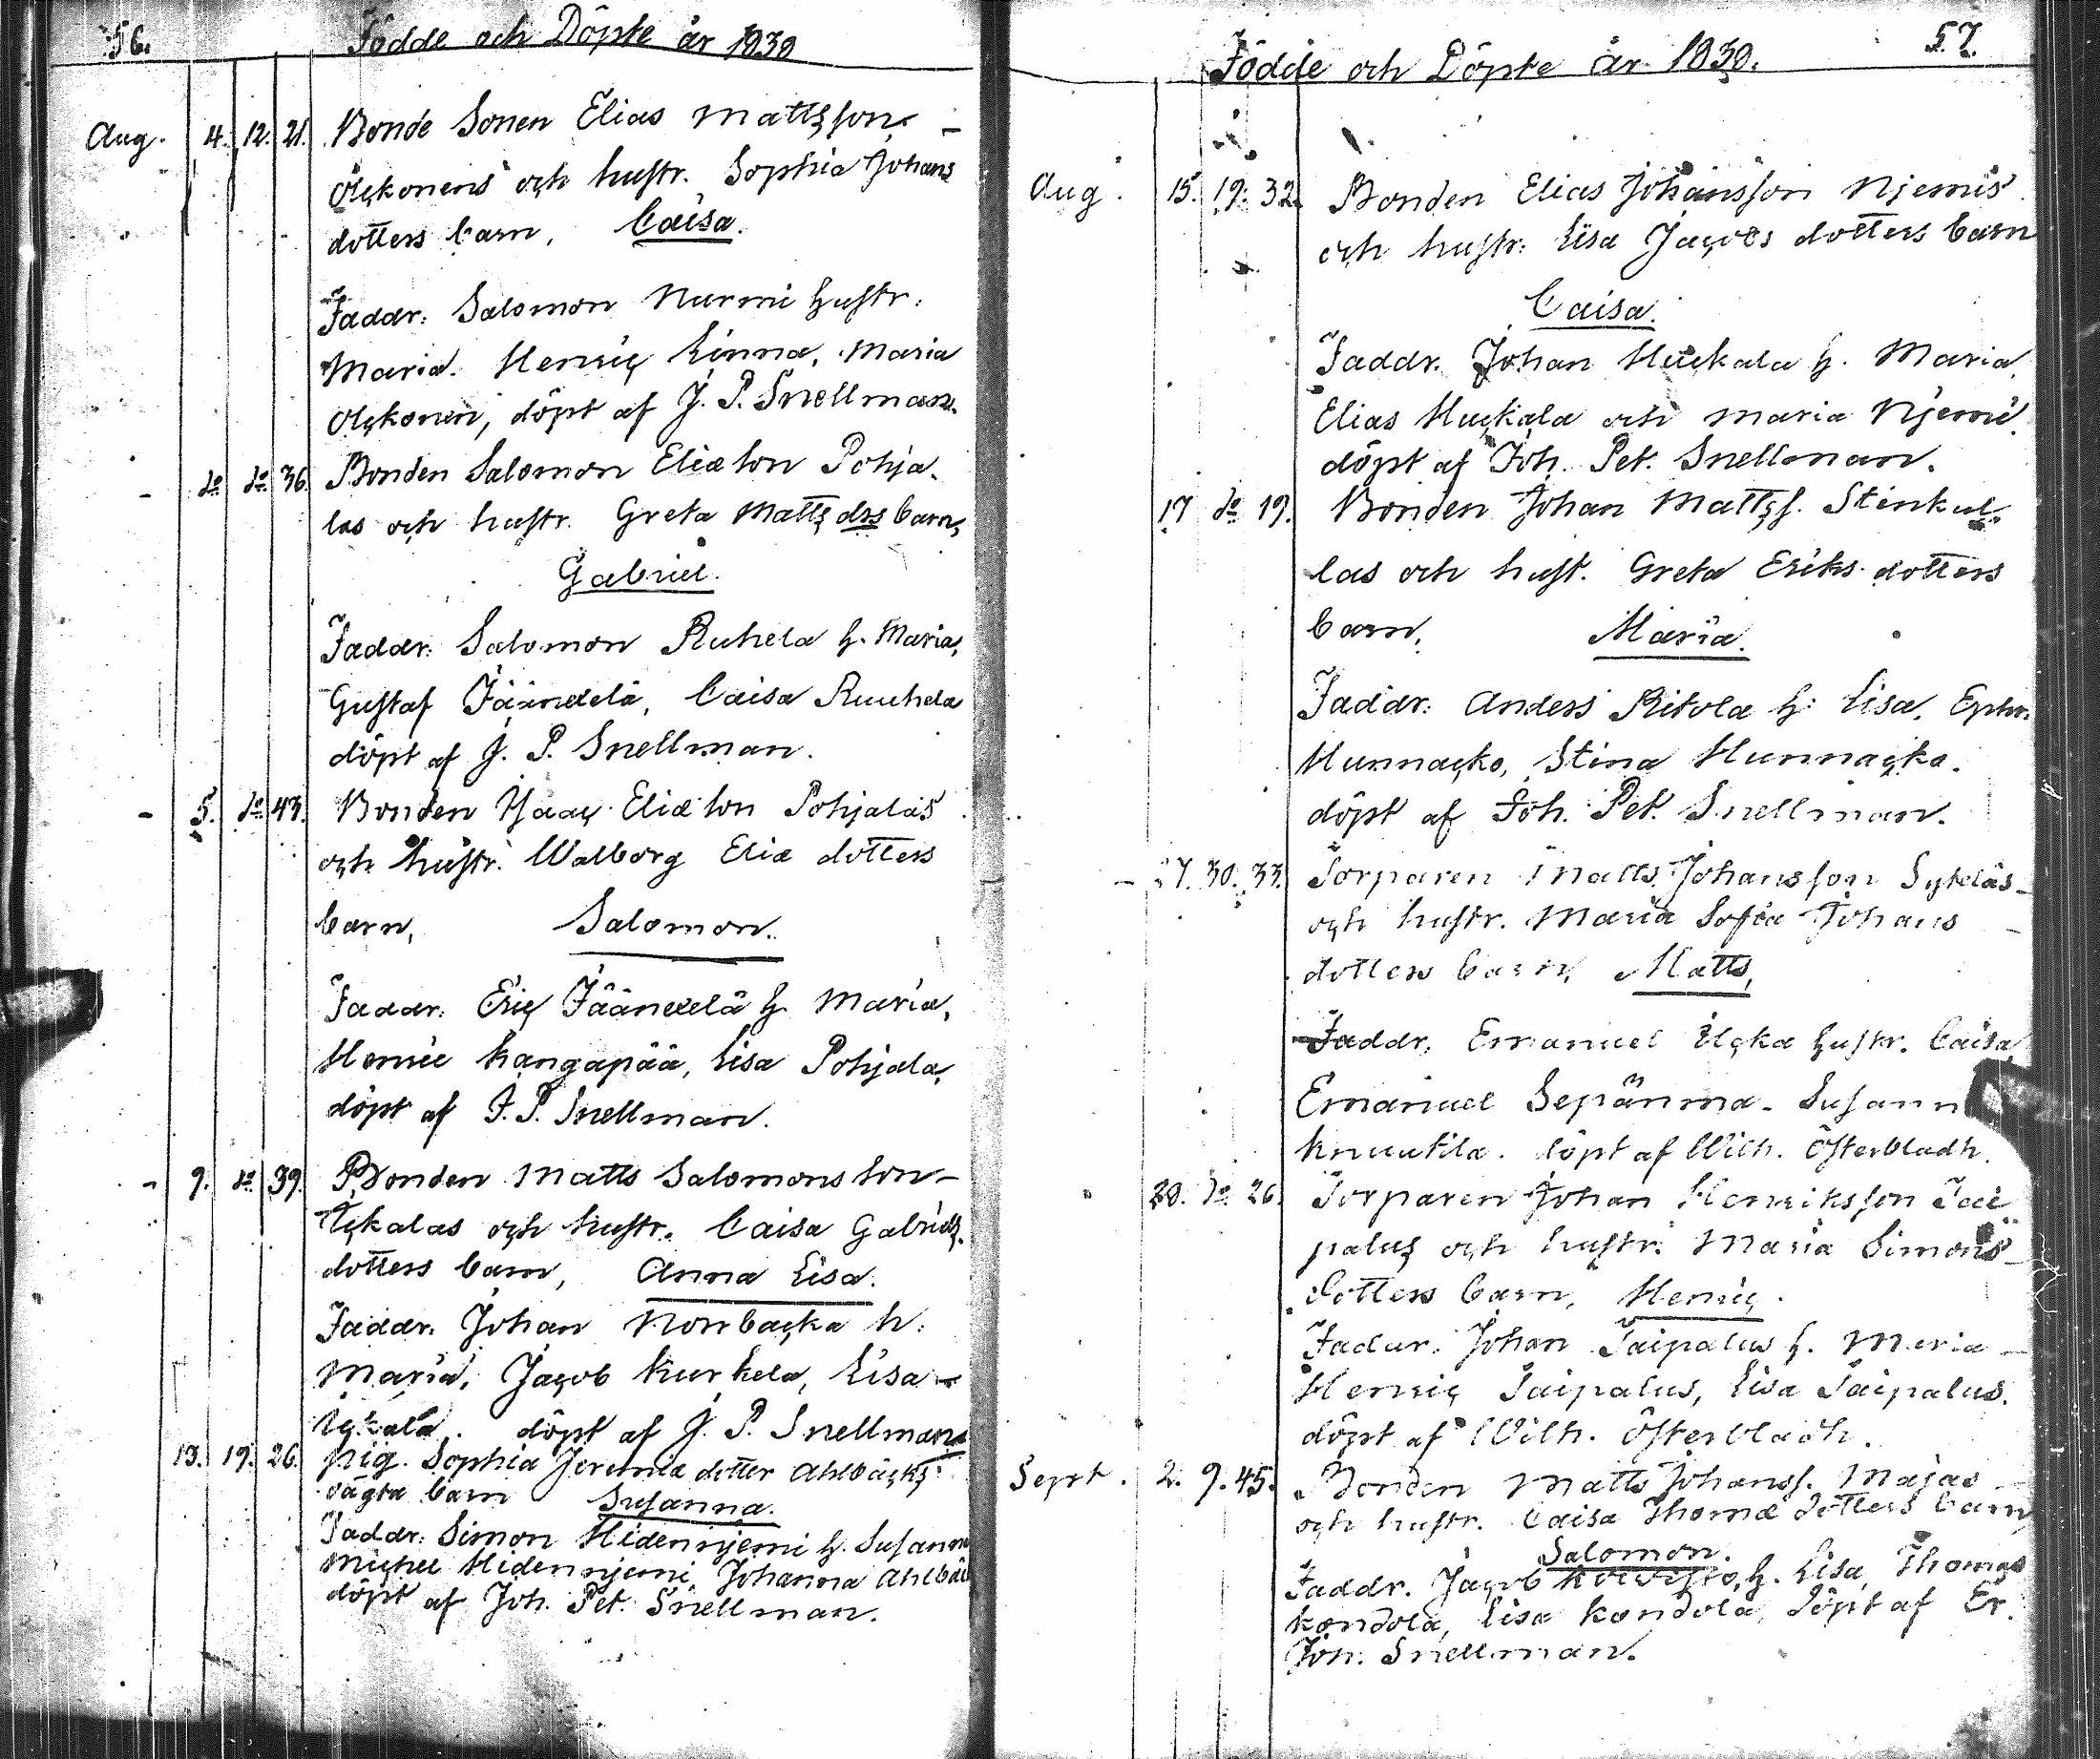 56.
Födde och Döpte år 1839
Aug. 4. 12. 21. Bonde Sonen Elias Mattsson
Olckonens och hustr. Sophia Johans
dotters barn, Caisa.
Faddr: Salomon Nurmi hustr.
Maria. Henric Linna, Maria
Olckonen, döpt af J. P. Snellman.
- do do 36. Bonden Salomon Eliæ son Pohja-
las och hustr. Greta Matts drs barn,
Gabriel.
Faddr: Salomon Ruhela h. Maria,
Gustaf Jäänelä, Caisa Ruuhela
döpt af J. P. Snellman.
- 5. do 43. Bonden Isaac Eliæ son Pohjalas
och hustr. Walborg Eliæ dotters
barn, Salomon.
Faddr: Eric Jäänelä h. Maria,
Henric Kangapää, Lisa Pohjala,
döpt af J. P. Snellman.
- 9. do 39. Bonden Matts Salomons son-
Yckalas och hustr. Caisa Gabriels.
dotters barn, Anna Lisa.
Faddr. Johan Norrbacka h.
Maria, Jacob Kurkela, Lisa -
Yckala. döpt af J. P. Snellman
13. 19. 26. pig. Sophia Jeremiæ dotter Ahlbäcks
oägta barn Susanna.
Faddr: Simon Hidenniemi h. Susanna
Michel Hidenniemi, Johanna Ahlbäc
döpt af Joh. Pet. Snellman.
57.
Födde och Döpte år 1839.
Aug. 15. 19. 32. Bonden Elias Johansson Njemis
och hustr: Lisa Jacobs dotters barn
Caisa.
Faddr. Johan Huckala h. Maria,
Elias Huckala och Maria Njemi.
döpt af Joh. Pet. Snellman.
17 do 19. Bonden Johan Mattss. Stenkul-
las och hust. Greta Eriks dotters
barn, Maria.
Faddr: Anders Ritola h: Lisa, Ephr.
Hunnacko, Stina Hunnacko.
döpt af Joh. Pet. Snellman.
- 27. 30. 33. Torparen Matts Johansson Sykeläs-
och hustr. Maria Sofia Johans
dotters barn, Matts,
Faddr: Emanuel Ilcka hustr. Caisa,
Emanuel Sepänma- Susann
Knuutila. döpt af Wilh. Österbladh.
20. do 26. Torparen Johan Henriksson Tai
palus och hustr. Maria Simons-
dotters barn, Henric.
Faddr: Johan Taipalus h. Maria -
Henric Taipalus, Lisa Taipalus.
döpt af Wilh. Österbladh.
Sept. 2. 9. 45. Bonden Matts Johanss. Majas
och hustr. Caisa Thomæ dotters barn,
Salomon.
Faddr. Jacob Koivisto, h. Lisa, Thomas
Kondola, Lisa Kondola, döpt af Er.
Joh. Snellman.